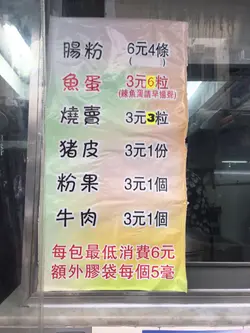 腸粉 6元4條
( )
魚蛋 3元6粒
(辣魚蛋請早惿夥)
燒賣 3元3粒
豬皮 3元1份
粉果 3元1個
牛肉 3元1個
每包最低消費6元
額外膠袋每個5毫